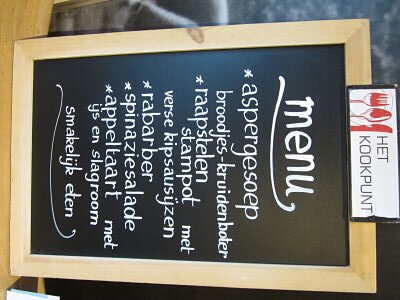 HET
KOOKPUNT
menu
*aspergesoep
broodjes-kruidenboter
*raapstelen
stampot met
verse kipsausijzen
*rabarber
*spinaziesalade
*appeltaart met
ijs en slagroom
smakelijk eten